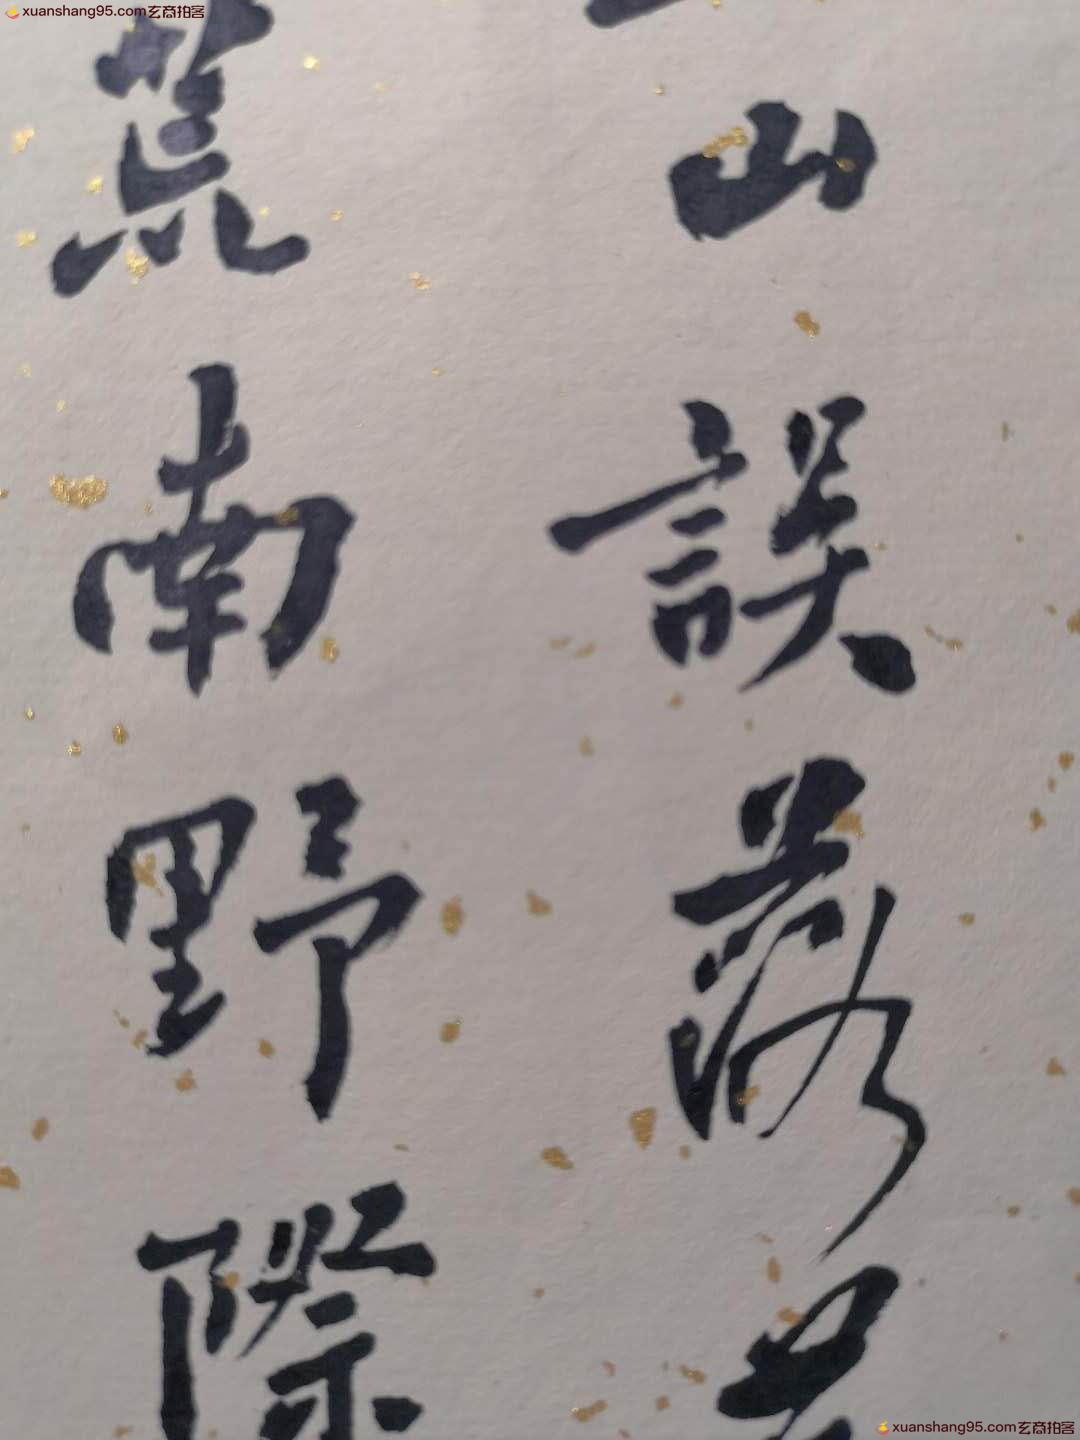 xuanshang95.com玄商拍客
山誤落
荒南野際
xuanshang95.com玄商拍客